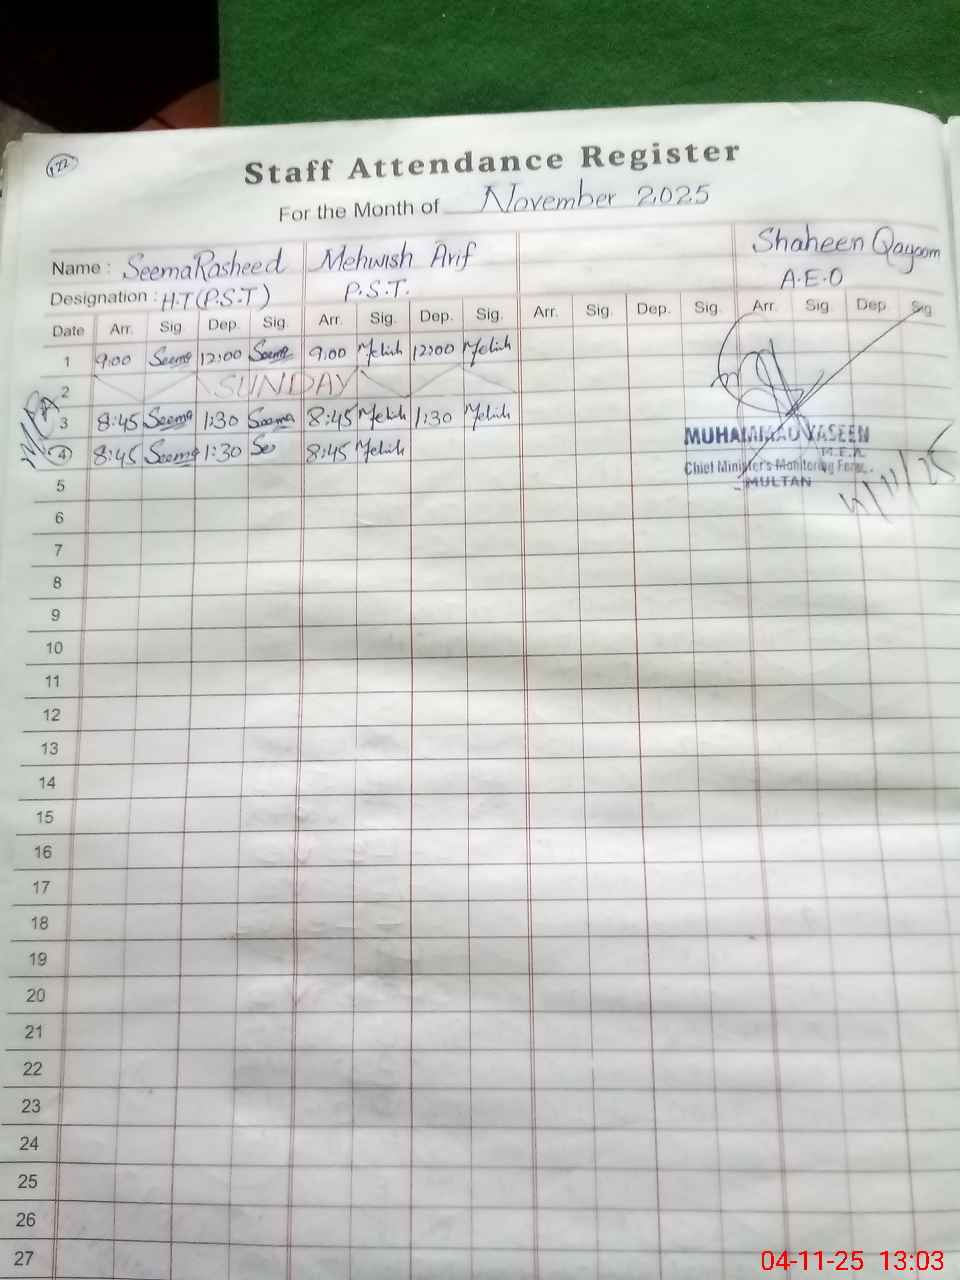 122
Staff Attendance Register
For the Month of November 2025
Name : Seema Rasheed Mehwish Arif Shaheen Qayoom
Designation : H.T (P.S.T) P.S.T. A.E.O
Date Arr. Sig. Dep. Sig. Arr. Sig. Dep. Sig. Arr. Sig. Dep. Sig. Arr. Sig. Dep. Sig
1 9:00 Seema 12:00 Seema 9:00 Mehwish 12:00 Mehwish
2 SUNDAY
3 8:45 Seema 1:30 Seema 8:45 Mehwish 1:30 Mehwish
4 8:45 Seema 1:30 See 8:45 Mehwish
MUHAMMAD YASEEN
M.E.A
Chief Minister's Monitoring Force
MULTAN
4/11/25
5
6
7
8
9
10
11
12
13
14
15
16
17
18
19
20
21
22
23
24
25
26
27
04-11-25 13:03